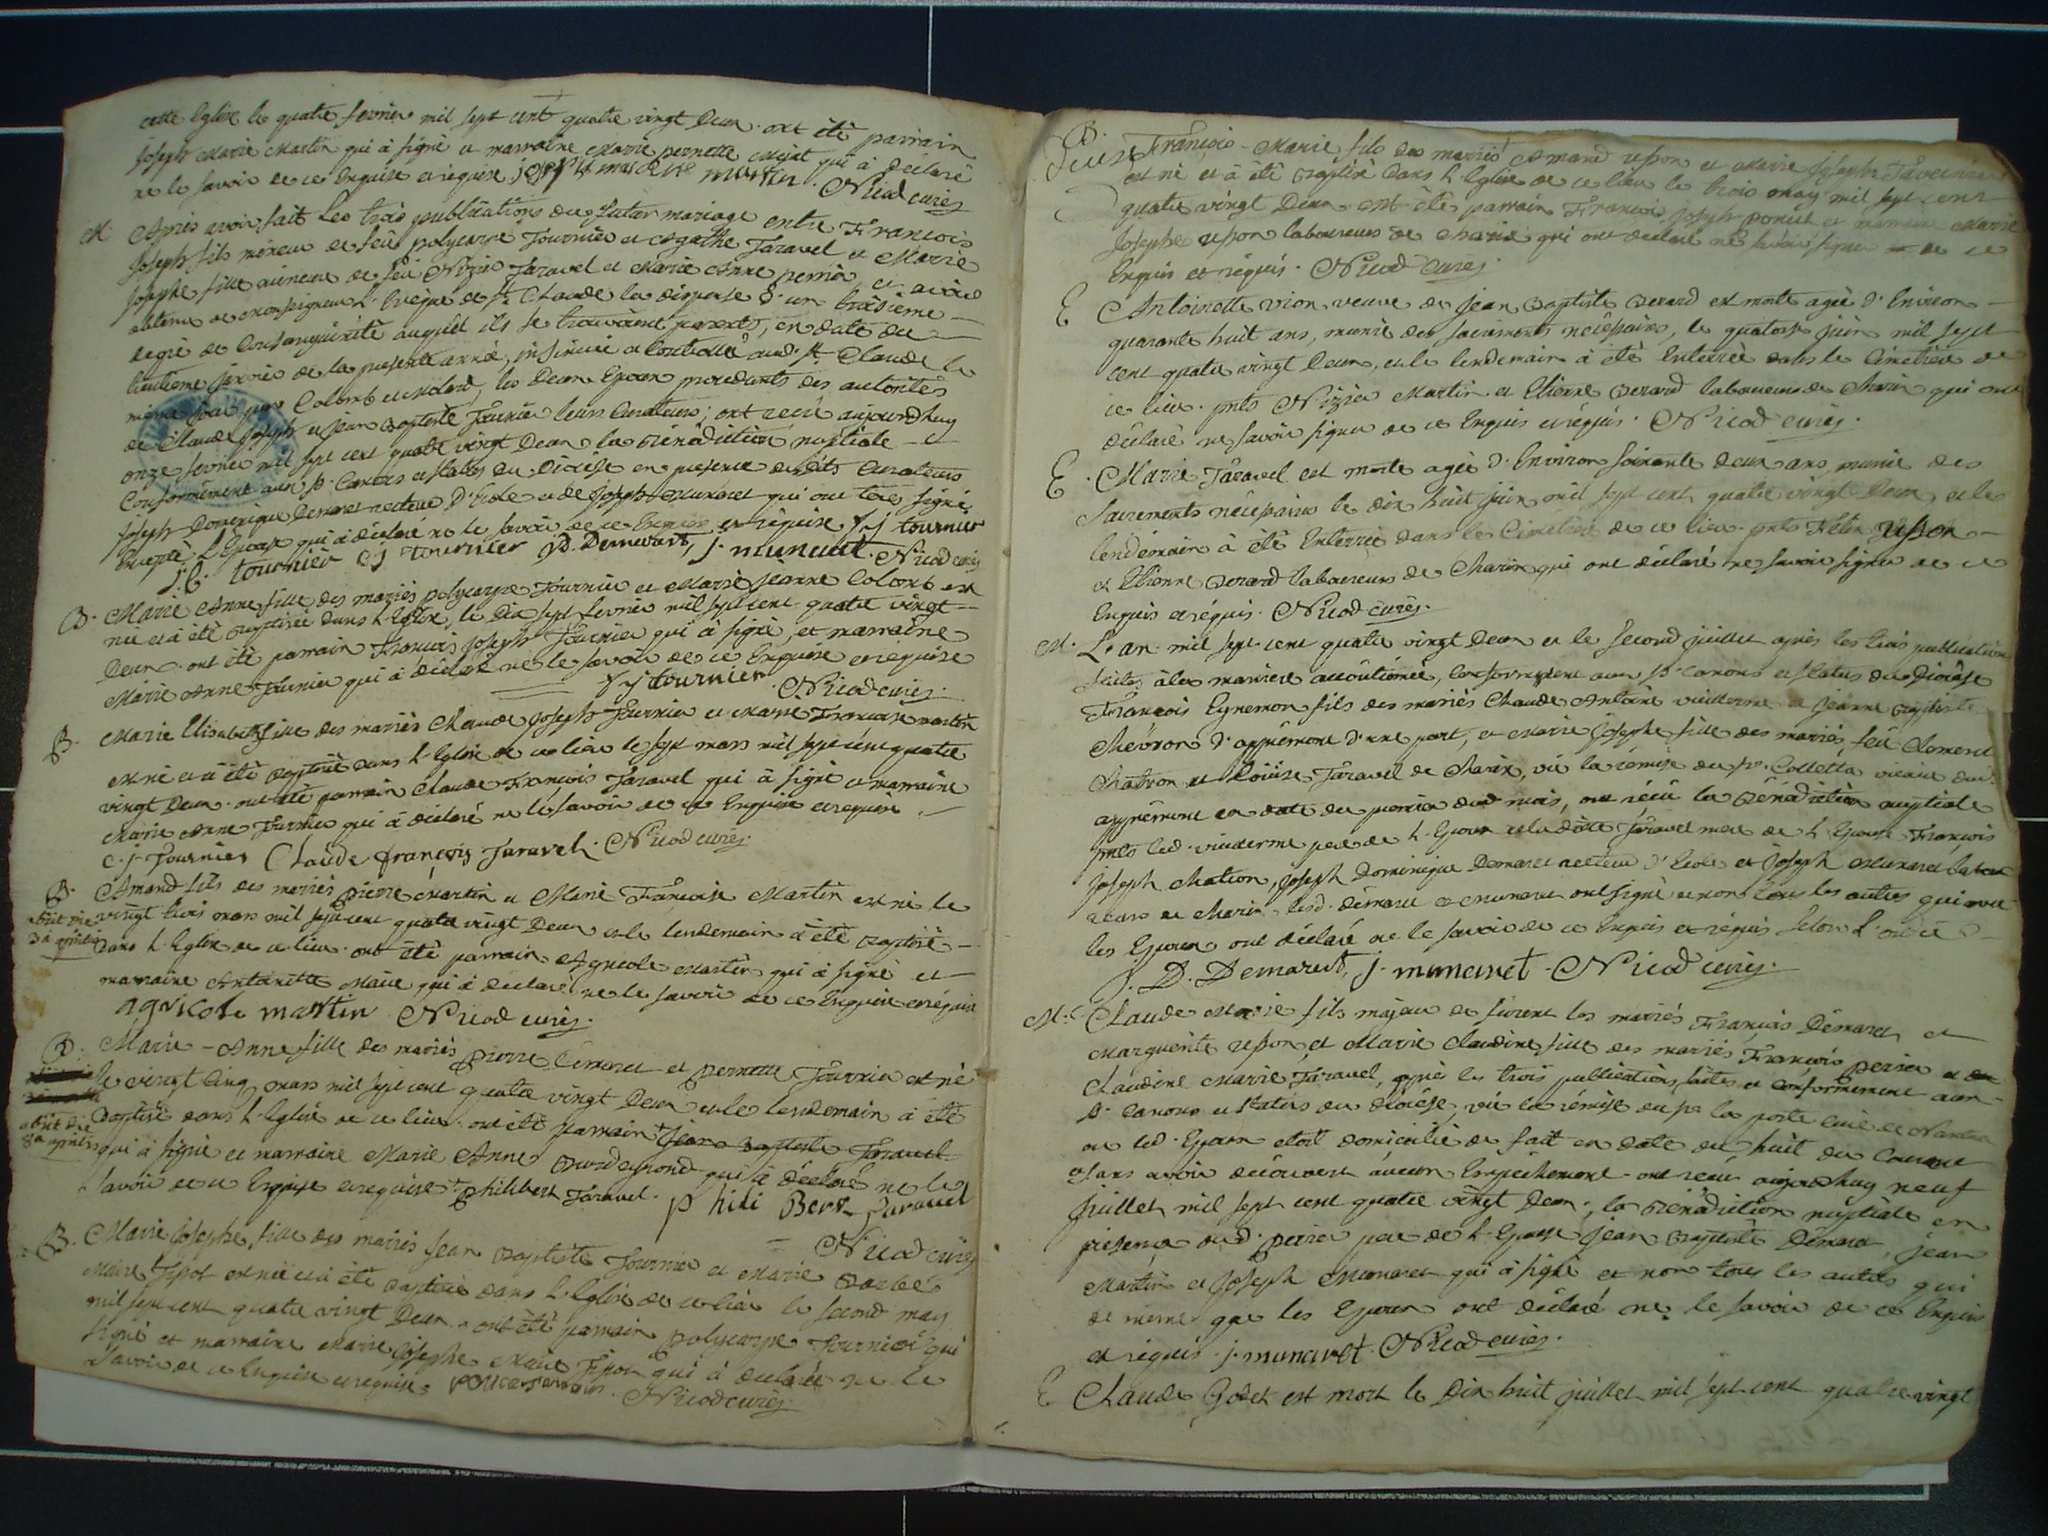 cette Eglise le quatre fevrier mil sept cent quatre vingt Deux. ont été parrain
Joseph Marie Martin qui à signé et marraine Marie pernette qui à déclaré
ne le savoir de ce Enquise et requise joseph marie martin. Nicod curés
M. Après avoir fait Les trois publications du futur mariage entre François
Joseph fils mineur de feu polycarpe Tournier et Agathe Taravel et Marie
Josephe fille mineure de feu Nizier Taravel et Marie Anne perrin et avoir
obtenu de monseigneur L'Eveque de St Claude la dispense d'un troisieme
degré de Consanguinité auquel ils se trouvoient parents, en date du
huitieme janvier de la presente année, insinuée et Controllé aud. St. Claude le
même jour Colomb les Deux Epoux procedants des autorités
de Claude Joseph et Jean Baptiste Tournier leurs Curateurs; ont recu aujourd'huy
onze fevrier mil sept cent quatre vingt Deux la Bénédiction nuptiale
Conformément aux St. Canons et statuts du Diocèse en presence desdits Curateurs
Joseph Dominique Demaret recteur d'Ecole et de Joseph Munaret qui ont tous signé
Excepté L'Epouse qui à déclaré ne le savoir de ce Enquise et requise f j tournier
J B. tournier C J tournier J D. Demaret, j. munaret. Nicod curés
B. Marie Anne fille des mariés polycarpe Tournier et Marie Jeanne Colomb est
née et à été Baptisée dans L'Eglise, le Dix sept fevrier mil sept cent quatre vingt
Deux. ont été parrain François Joseph Tournier qui à signé, et marraine
Marie Anne Tournier qui à déclaré ne le savoir de ce Enquise et requise
f j tournier. Nicod curés.
B. Marie Elisabeth fille des mariés Claude Joseph Tournier et Marie Françoise martin
est né et à été Baptisé dans L'Eglise de ce lieu le sept mars mil sept cent quatre
vingt Deux. ont été parrain Claude François Taravel qui à signé et marraine
Marie Anne Tournier qui à déclaré ne le savoir de ce Enquise et requise
C. j. Tournier Claude françois Taravel. Nicod curés.
B. Amand fils des mariés pierre Martin et Marie Françoise Martin est né le
vingt trois mars mil sept cent quatre vingt Deux et le lendemain à été Baptisé
dans L'Eglise de ce lieu. ont été parrain Agricole Martin qui à signé et
marraine Antoinette qui à déclaré ne le savoir de ce Enquise et réquise
agricole martin. Nicod curés.
B. Marie-Anne fille des mariés pierre Démaret et pernette Tournier est né
le vingt Cinq mars mil sept cent quatre vingt Deux et le lendemain à été
Baptisé dans L'Eglise de ce lieu. ont été parrain + Jean Baptiste Taravel
qui à signé et marraine Marie Anne qui à déclaré ne le
savoir de ce Enquise et requise + Philibert Taravel. Phili Bert Taravel
Nicod curés
B. Marie Josephe, fille des mariés Jean Baptiste Tournier et Marie Barbe
est née et à été Baptisée dans L'Eglise de ce lieu le second may
mil sept cent quatre vingt Deux. ont été parrain polycarpe Tournier qui
signé et marraine Marie Josephe qui à déclaré ne le
savoir de ce Enquise et requise. Nicod curés.
B. François-Marie fils des mariés Amand et Marie Joseph Tavernier
est né et à été Baptisé dans L'Eglise de ce lieu le trois may mil sept cent
quatre vingt Deux. ont été parrain François Joseph poncet et marraine Marie
Josephe laboureurs de Charix qui ont declaré ne savoir signer de ce
Enquis et réquis. Nicod curés.
E Antoinette vion veuve de Jean Baptiste Berard est morte agée d'Environ
quarante huit ans, munie des sacrements nécéssaires, le quatorze juin mil sept
cent quatre vingt Deux, et le lendemain à été Enterrée dans le Cimetière de
ce lieu. pnts Nizier Martin et Etienne Berard laboureurs de Charix qui ont
déclaré ne savoir signer de ce Enquis et réquis. Nicod curés.
E Marie Taravel est morte agée d'Environ soixante deux ans munie des
Sacrements nécéssaires le dix huit juin mil sept cent quatre vingt Deux, et le
lendemain à été Enterrée dans le Cimetière de ce lieu. pnts
et Etienne Berard laboureurs de Charix qui ont déclaré ne savoir signer de ce
Enquis et réquis. Nicod curés.
M. L'an mil sept cent quatre vingt Deux et le second juillet après les trois publications
faites à la maniere accoûtumée, Conformément aux St. Canons et statuts du Diocèse
François Eynemon fils des mariés Claude Antoine vuillerme et Jeanne Baptiste
Chévron d'apprémont d'une part, et Marie Josephe fille des mariés feû Clement
et Loüise Taravel de Charix, vû la rémise du Sr. Colletta vicaire dud.
apprémont en date du premier dud. mois, ont reçu la Bénédiction nuptiale
pnts led. vuillerme pere de L'Epoux et ladite Taravel mere de L'Epouse François
Joseph Joseph Dominique Demaret recteur d'Ecole et Joseph Munaret
de Charix lesd. démaret et munaret ont signé et non tous les autres qui avec
les Epoux ont déclaré ne le savoir de ce Enquis et réquis selon L'ord.ce
J. D. Demaret, j. munaret. Nicod curés.
M. Claude Marie fils majeur de furent les mariés François Démaret et
Marguerite et Marie Claudine fille des mariés François perrier et
Claudine Marie Taravel, après les trois publications faites et conformément aux
St. Canons et statuts du diocèse, vû la rémise du Sr la porte curé de Nantua
où led. Epoux etoit domicilié de fait en date du huit du Courant
sans avoir découvert aucun Empêchement. ont reçu aujourd'huy neuf
Juillet mil sept cent quatre vingt Deux, la Bénédiction nuptiale en
présence dud. perrier pere de L'Epouse Jean Baptiste Démaret, Jean
Martin et Joseph Munaret qui à signé et non tous les autres qui
de même que les Epoux ont déclaré ne le savoir de ce Enquis
et réquis. j. munaret. Nicod curés.
E Claude Godet est mort le Dix huit juillet mil sept cent quatre vingt